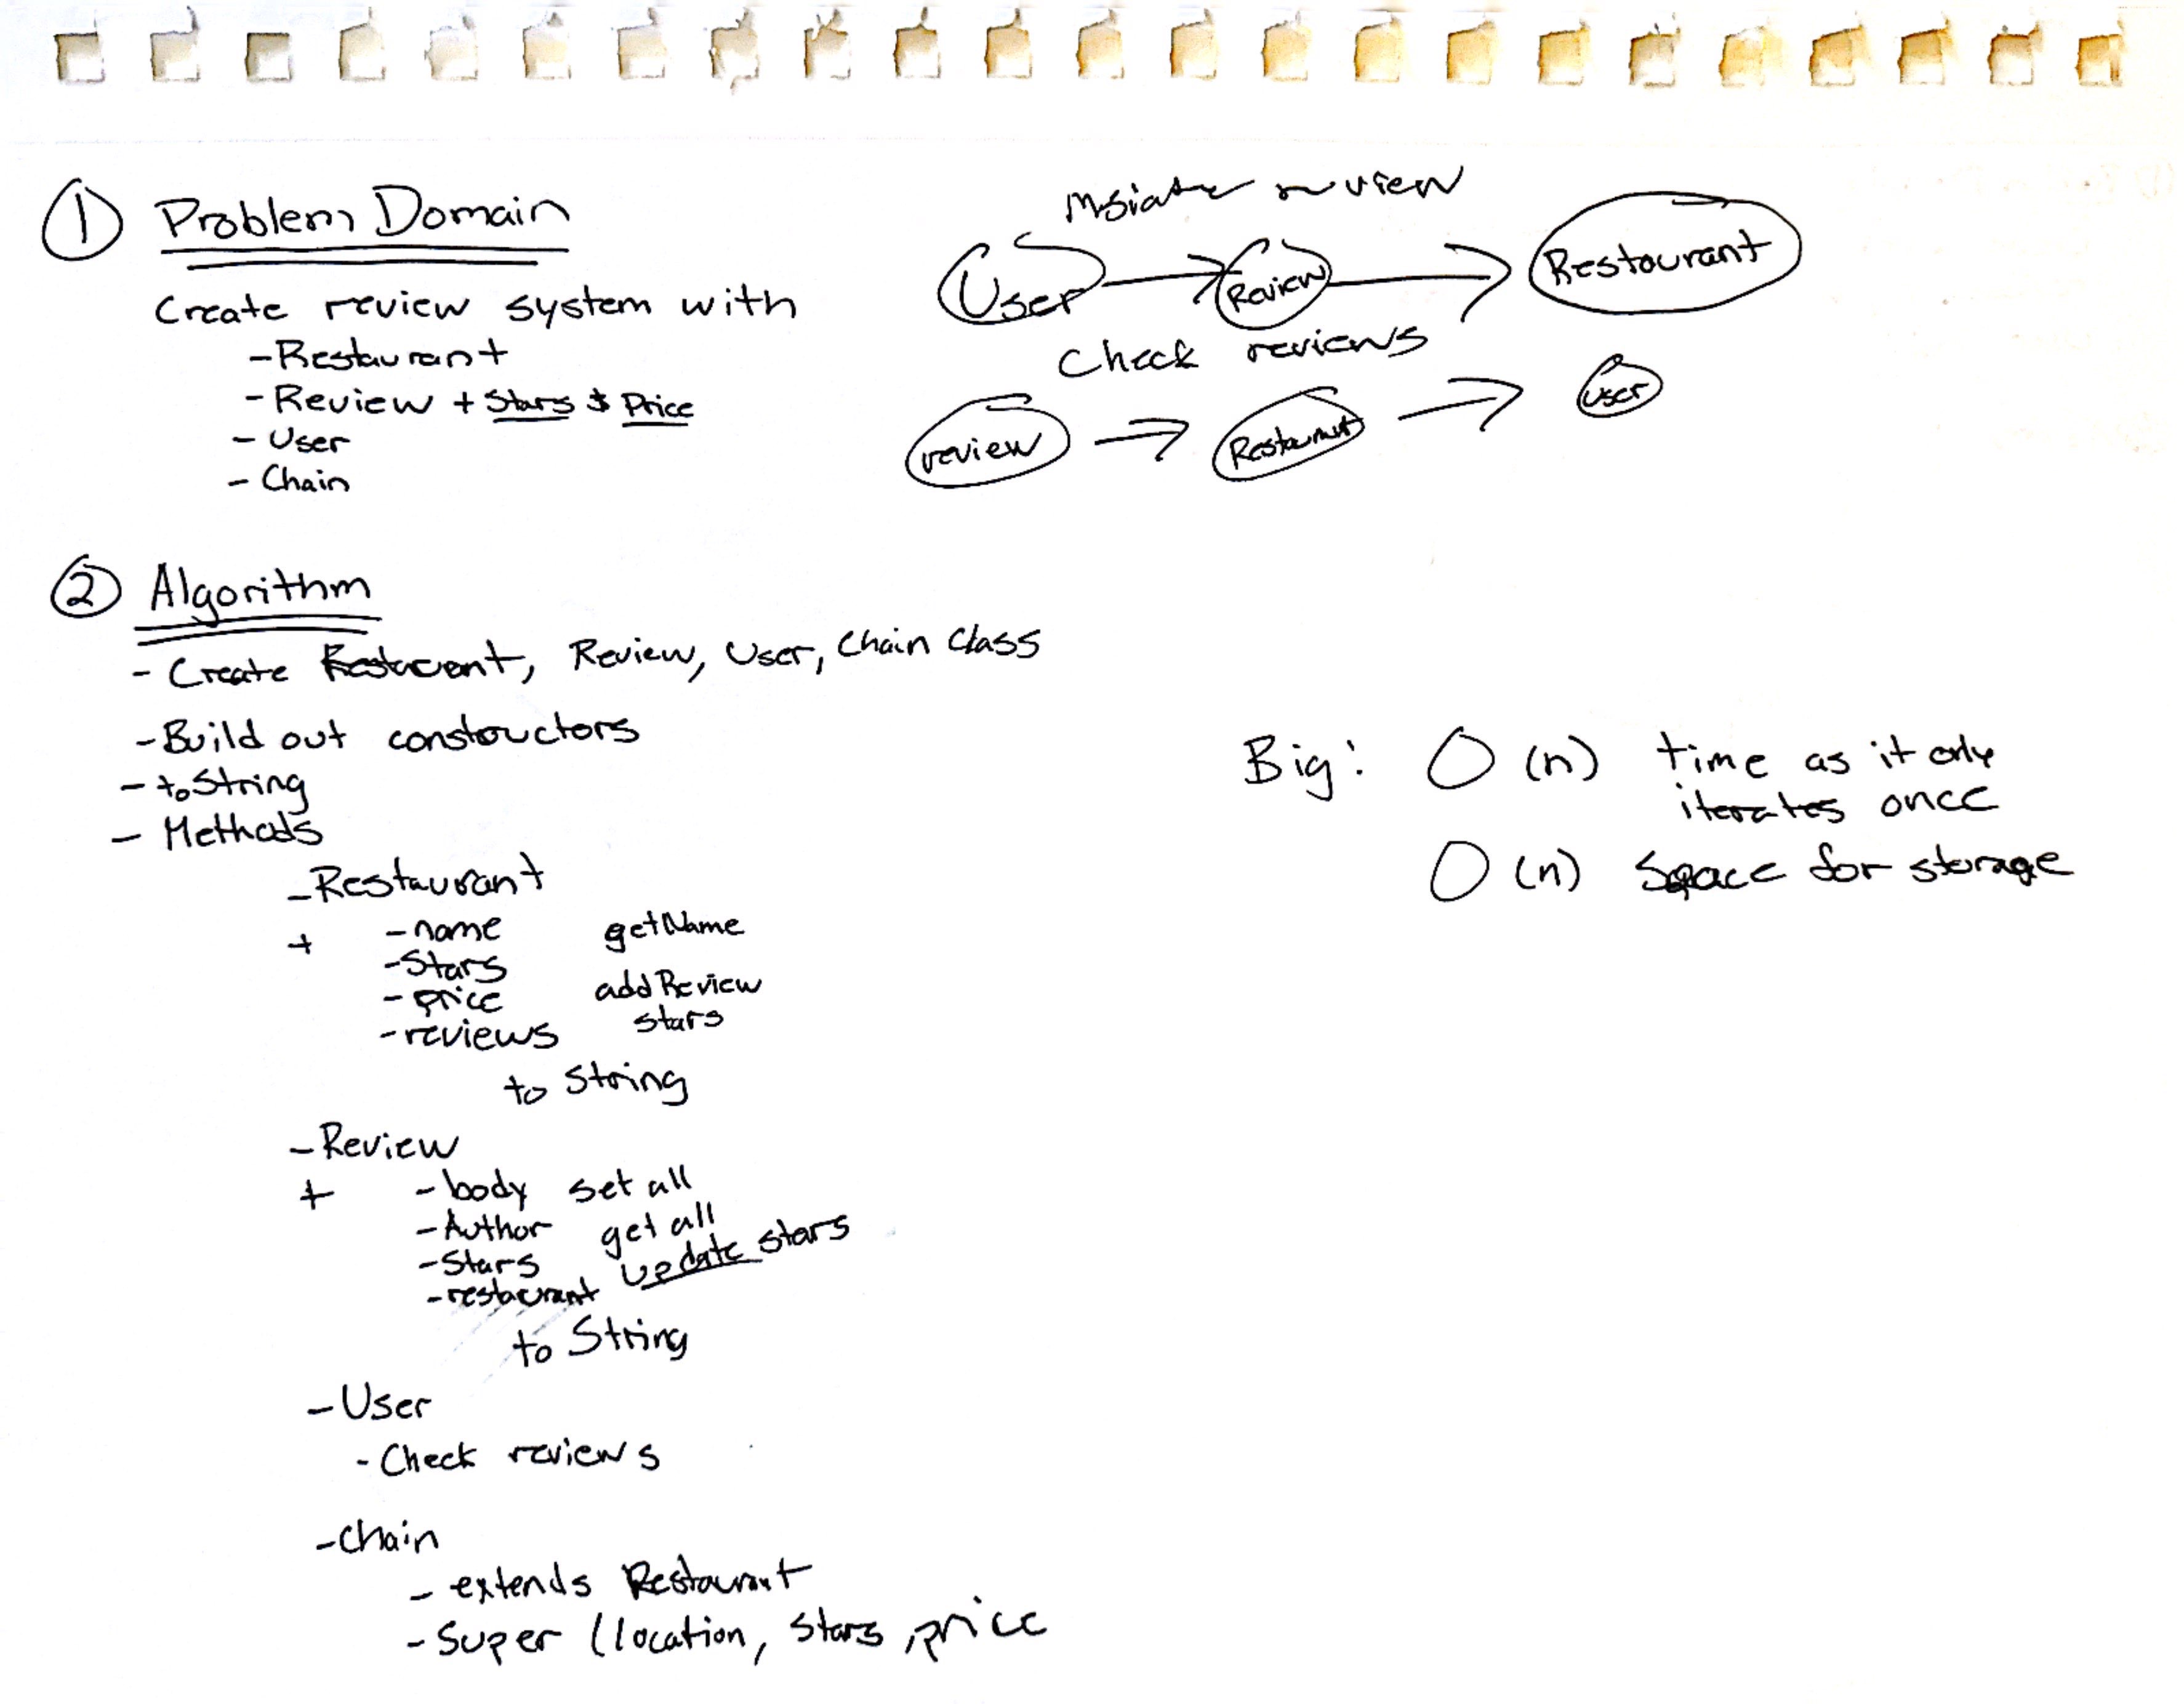 1 Problem Domain
Create review system with
- Restaurant
- Review + Stars $ Price
- User
- Chain
review
User Review Restaurant
Check reviews
review Restaurant user
2 Algorithm
- Create Restaurant, Review, User, Chain Class
- Build out constructors
- toString
- Methods
- Restaurant
+ - name getName
- Stars
- price addReview
- reviews stars
to String
- Review
+ - body set all
- Author get all
- Stars update stars
- restaurant
to String
- User
- Check reviews
- Chain
- extends Restaurant
- Super (location, stars, price
Big: O (n) time as it only
iterates once
O (n) Space for storage